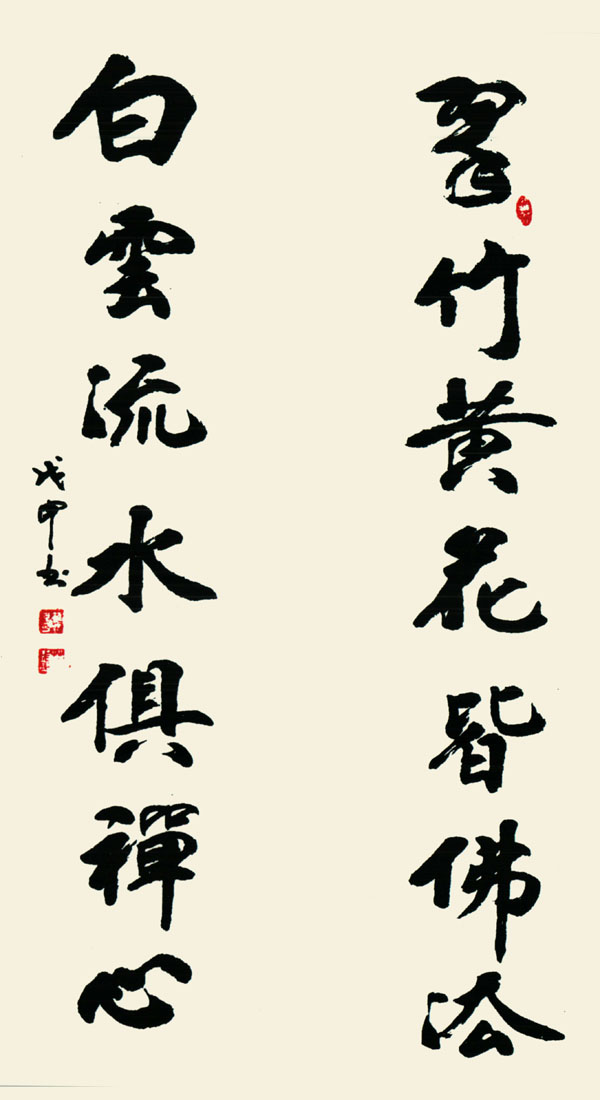 翠竹黄花皆佛法
白雲流水俱禪心
戊申书